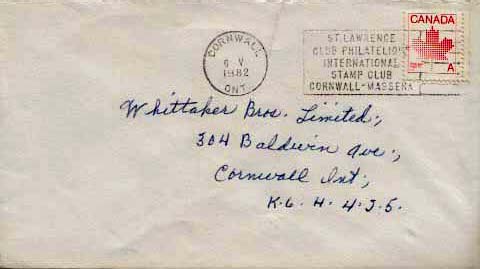 CORNWALL
6 V
1982
ONT.
ST. LAWRENCE
CLUB PHILATELIQUE
INTERNATIONAL
STAMP CLUB
CORNWALL-MASSENA
CANADA
A
Whittaker Bros. Limited.,
304 Baldwin Ave.,
Cornwall Ont.,
K.6. H. 4.J.5.